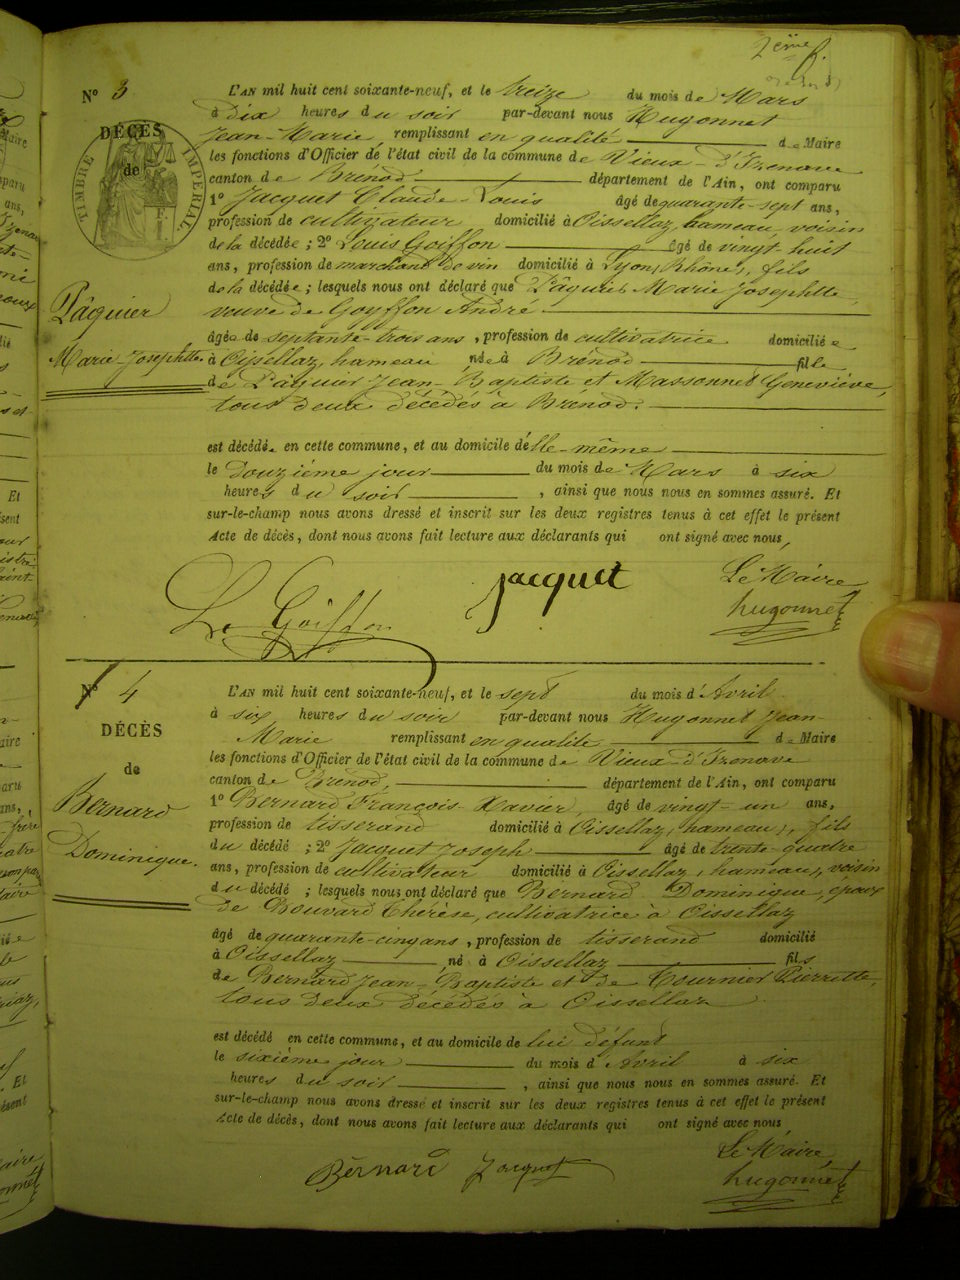 2ème f.
N° 3
DÉCÈS
de
TIMBRE IMPÉRIAL
Pâquier
Marie Josephtte
L'AN mil huit cent soixante-neuf, et le treize du mois de Mars
à Dix heures du soir par-devant nous Hugonnet
Jean-Marie, remplissant en qualité de Maire
les fonctions d'Officier de l'état civil de la commune de Vieux-d'Izenave
canton de Brénod département de l'Ain, ont comparu
1° Jacquet Claude-Louis âgé de quarante-sept ans,
profession de cultivateur domicilié à Oissellaz, hameau, voisin
de la décédée ; 2° Louis Goiffon âgé de vingt huit
ans, profession de marchand de vin domicilié à Lyon, Rhône, fils
de la décédée ; lesquels nous ont déclaré que Pâquier Marie Josephtte,
veuve de Goyffon André
âgée de septante-trois ans, profession de cultivatrice domiciliée
à Oissellaz, hameau née à Brénod fille
de Pâquier Jean-Baptiste et Massonnet Geneviève,
tous deux décédés à Brénod.
est décédée en cette commune, et au domicile d'elle-même
le douzième jour du mois de Mars à six
heures du soir, ainsi que nous nous en sommes assuré. Et
sur-le-champ nous avons dressé et inscrit sur les deux registres tenus à cet effet le présent
Acte de décès, dont nous avons fait lecture aux déclarants qui ont signé avec nous,
Ls Goiffon Jacquet Le Maire
hugonnet
N° 4
DÉCÈS
de
Bernard
Dominique.
L'AN mil huit cent soixante-neuf, et le sept du mois d'Avril
à six heures du soir par-devant nous Hugonnet Jean-
Marie remplissant en qualité de Maire
les fonctions d'Officier de l'état civil de la commune de Vieux-d'Izenave
canton de Brénod, département de l'Ain, ont comparu
1° Bernard François-Xavier, âgé de vingt-un ans,
profession de tisserand domicilié à Oissellaz, hameau, fils
du décédé ; 2° Jacquet Joseph âgé de trente-quatre
ans, profession de cultivateur domicilié à Oissellaz, hameau, voisin
du décédé ; lesquels nous ont déclaré que Bernard Dominique, époux
de Bouvard Thérèse, cultivatrice à Oissellaz
âgé de quarante-cinq ans, profession de tisserand domicilié
à Oissellaz, né à Oissellaz fils
de Bernard Jean-Baptiste et de Tournier Pierrette,
tous deux décédés à Oissellaz.
est décédé en cette commune, et au domicile de lui défunt
le sixième jour du mois d'Avril à six
heures du soir, ainsi que nous nous en sommes assuré. Et
sur-le-champ nous avons dressé et inscrit sur les deux registres tenus à cet effet le présent
Acte de décès, dont nous avons fait lecture aux déclarants qui ont signé avec nous
Bernard Jacquet Le Maire,
hugonnet